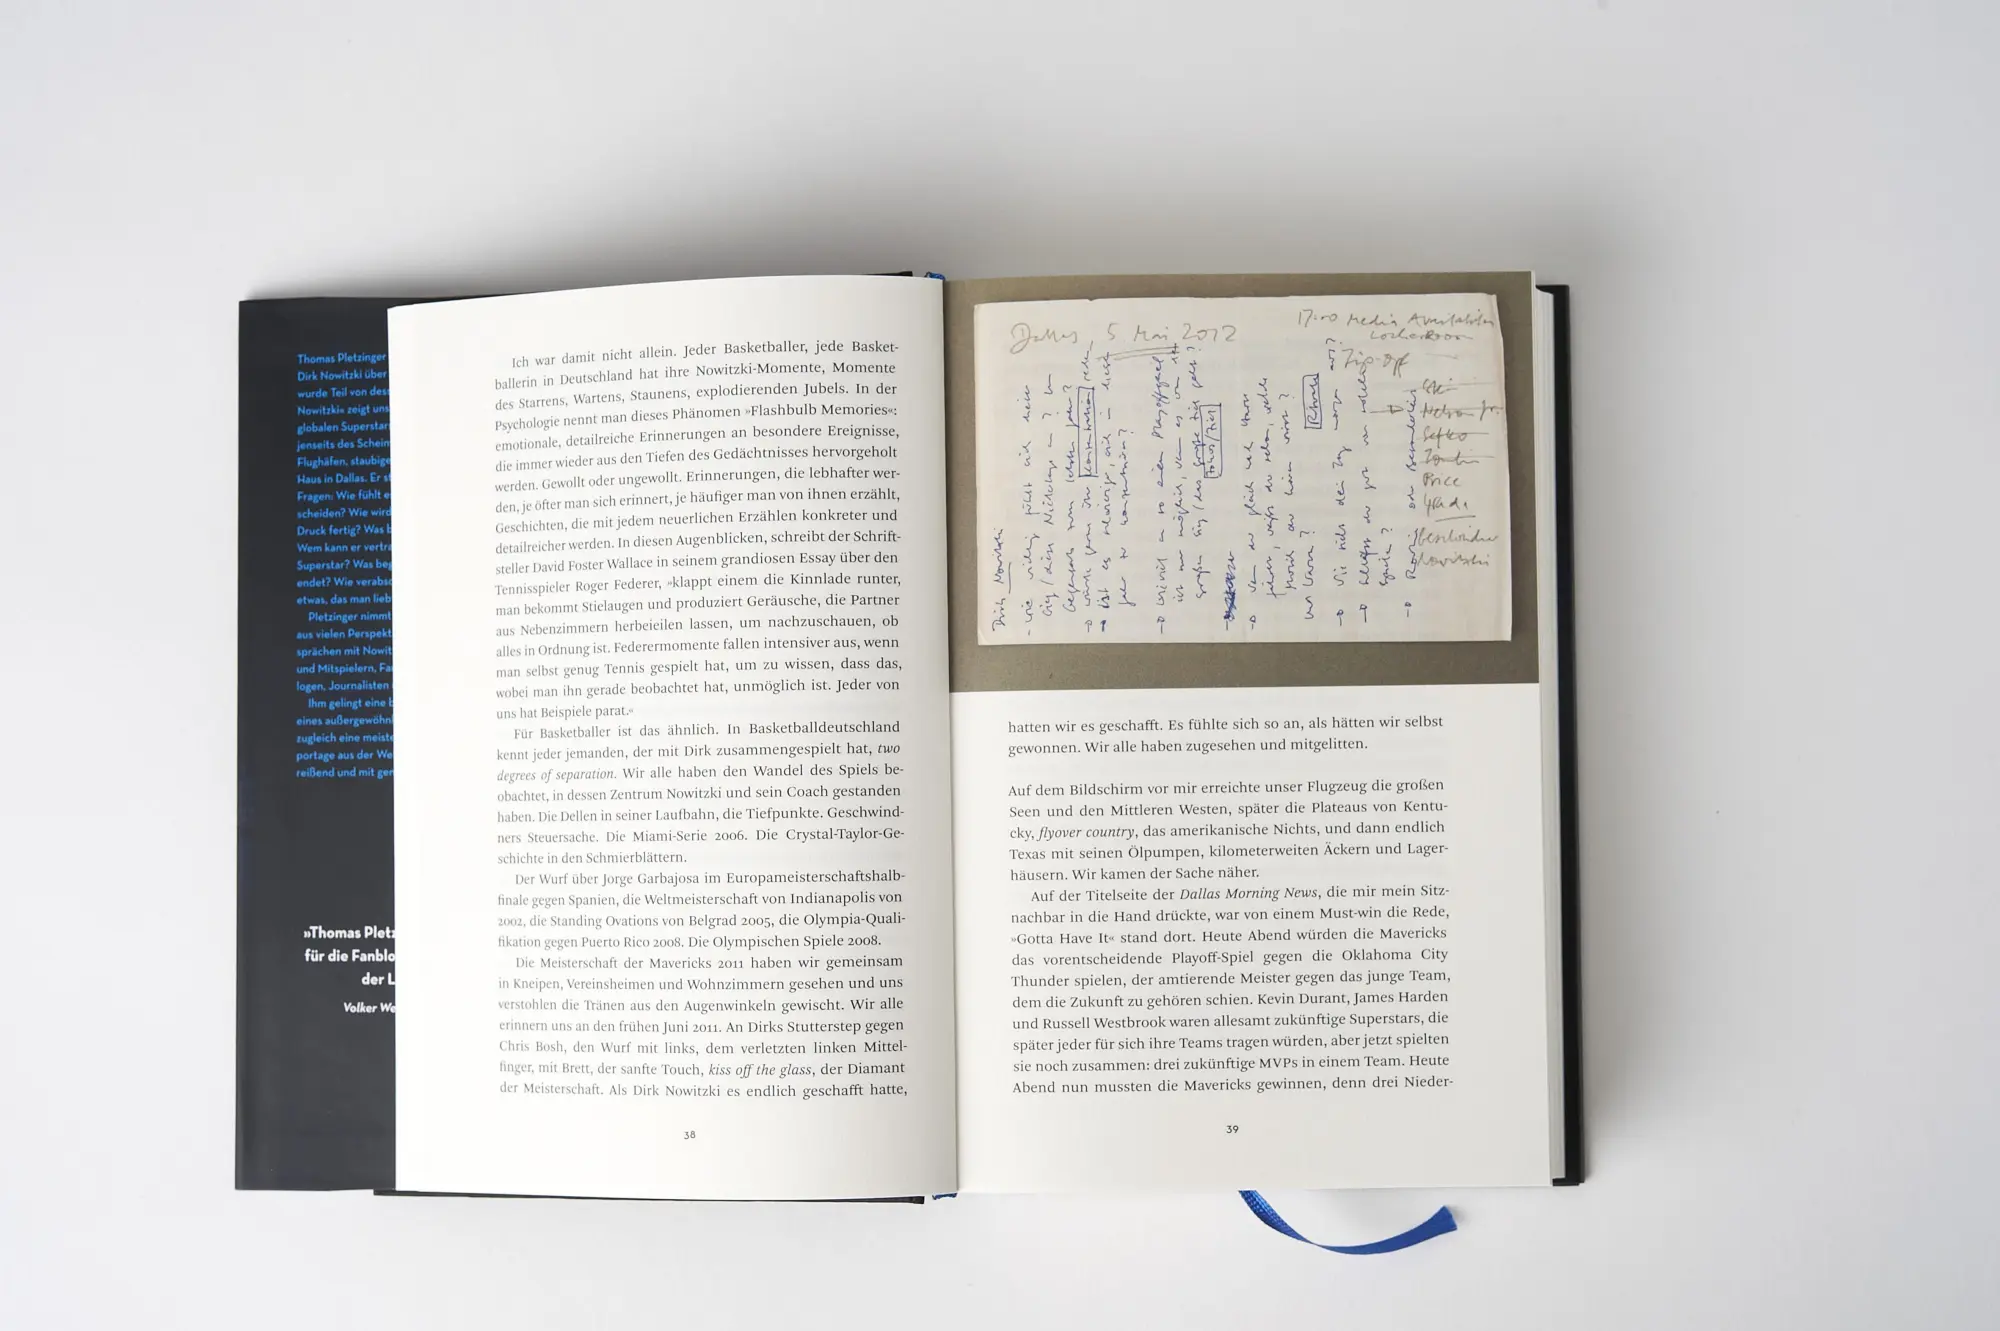 Thomas Pletzinger
Dirk Nowitzki über
wurde Teil von des
Nowitzki« zeigt uns
globalen Superstar
jenseits des Schein
Flughäfen, staubige
Haus in Dallas. Er s
Fragen: Wie fühlt e
scheiden? Wie wird
Druck fertig? Was b
Wem kann er vertra
Superstar? Was beg
endet? Wie verabsc
etwas, das man lieb
Pletzinger nimmt
aus vielen Perspekt
sprächen mit Nowit
und Mitspielern, Fa
logen, Journalisten
Ihm gelingt eine b
eines außergewöhnl
zugleich eine meiste
portage aus der We
reißend und mit ger
»Thomas Pletz
für die Fanblo
der L
Volker We
Ich war damit nicht allein. Jeder Basketballer, jede Basket-
ballerin in Deutschland hat ihre Nowitzki-Momente, Momente
des Starrens, Wartens, Staunens, explodierenden Jubels. In der
Psychologie nennt man dieses Phänomen »Flashbulb Memories«:
emotionale, detailreiche Erinnerungen an besondere Ereignisse,
die immer wieder aus den Tiefen des Gedächtnisses hervorgeholt
werden. Gewollt oder ungewollt. Erinnerungen, die lebhafter wer-
den, je öfter man sich erinnert, je häufiger man von ihnen erzählt,
Geschichten, die mit jedem neuerlichen Erzählen konkreter und
detailreicher werden. In diesen Augenblicken, schreibt der Schrift-
steller David Foster Wallace in seinem grandiosen Essay über den
Tennisspieler Roger Federer, »klappt einem die Kinnlade runter,
man bekommt Stielaugen und produziert Geräusche, die Partner
aus Nebenzimmern herbeieilen lassen, um nachzuschauen, ob
alles in Ordnung ist. Federermomente fallen intensiver aus, wenn
man selbst genug Tennis gespielt hat, um zu wissen, dass das,
wobei man ihn gerade beobachtet hat, unmöglich ist. Jeder von
uns hat Beispiele parat.«
Für Basketballer ist das ähnlich. In Basketballdeutschland
kennt jeder jemanden, der mit Dirk zusammengespielt hat, two
degrees of separation. Wir alle haben den Wandel des Spiels be-
obachtet, in dessen Zentrum Nowitzki und sein Coach gestanden
haben. Die Dellen in seiner Laufbahn, die Tiefpunkte. Geschwind-
ners Steuersache. Die Miami-Serie 2006. Die Crystal-Taylor-Ge-
schichte in den Schmierblättern.
Der Wurf über Jorge Garbajosa im Europameisterschaftshalb-
finale gegen Spanien, die Weltmeisterschaft von Indianapolis von
2002, die Standing Ovations von Belgrad 2005, die Olympia-Quali-
fikation gegen Puerto Rico 2008. Die Olympischen Spiele 2008.
Die Meisterschaft der Mavericks 2011 haben wir gemeinsam
in Kneipen, Vereinsheimen und Wohnzimmern gesehen und uns
verstohlen die Tränen aus den Augenwinkeln gewischt. Wir alle
erinnern uns an den frühen Juni 2011. An Dirks Stutterstep gegen
Chris Bosh, den Wurf mit links, dem verletzten linken Mittel-
finger, mit Brett, der sanfte Touch, kiss off the glass, der Diamant
der Meisterschaft. Als Dirk Nowitzki es endlich geschafft hatte,
38
Dallas 5 Mai 2012
17:00 Media
Tip-Off
Price
Nowitzki
Dirk Nowitzki
hatten wir es geschafft. Es fühlte sich so an, als hätten wir selbst
gewonnen. Wir alle haben zugesehen und mitgelitten.
Auf dem Bildschirm vor mir erreichte unser Flugzeug die großen
Seen und den Mittleren Westen, später die Plateaus von Kentu-
cky, flyover country, das amerikanische Nichts, und dann endlich
Texas mit seinen Ölpumpen, kilometerweiten Äckern und Lager-
häusern. Wir kamen der Sache näher.
Auf der Titelseite der Dallas Morning News, die mir mein Sitz-
nachbar in die Hand drückte, war von einem Must-win die Rede,
»Gotta Have It« stand dort. Heute Abend würden die Mavericks
das vorentscheidende Playoff-Spiel gegen die Oklahoma City
Thunder spielen, der amtierende Meister gegen das junge Team,
dem die Zukunft zu gehören schien. Kevin Durant, James Harden
und Russell Westbrook waren allesamt zukünftige Superstars, die
später jeder für sich ihre Teams tragen würden, aber jetzt spielten
sie noch zusammen: drei zukünftige MVPs in einem Team. Heute
Abend nun mussten die Mavericks gewinnen, denn drei Nieder-
39